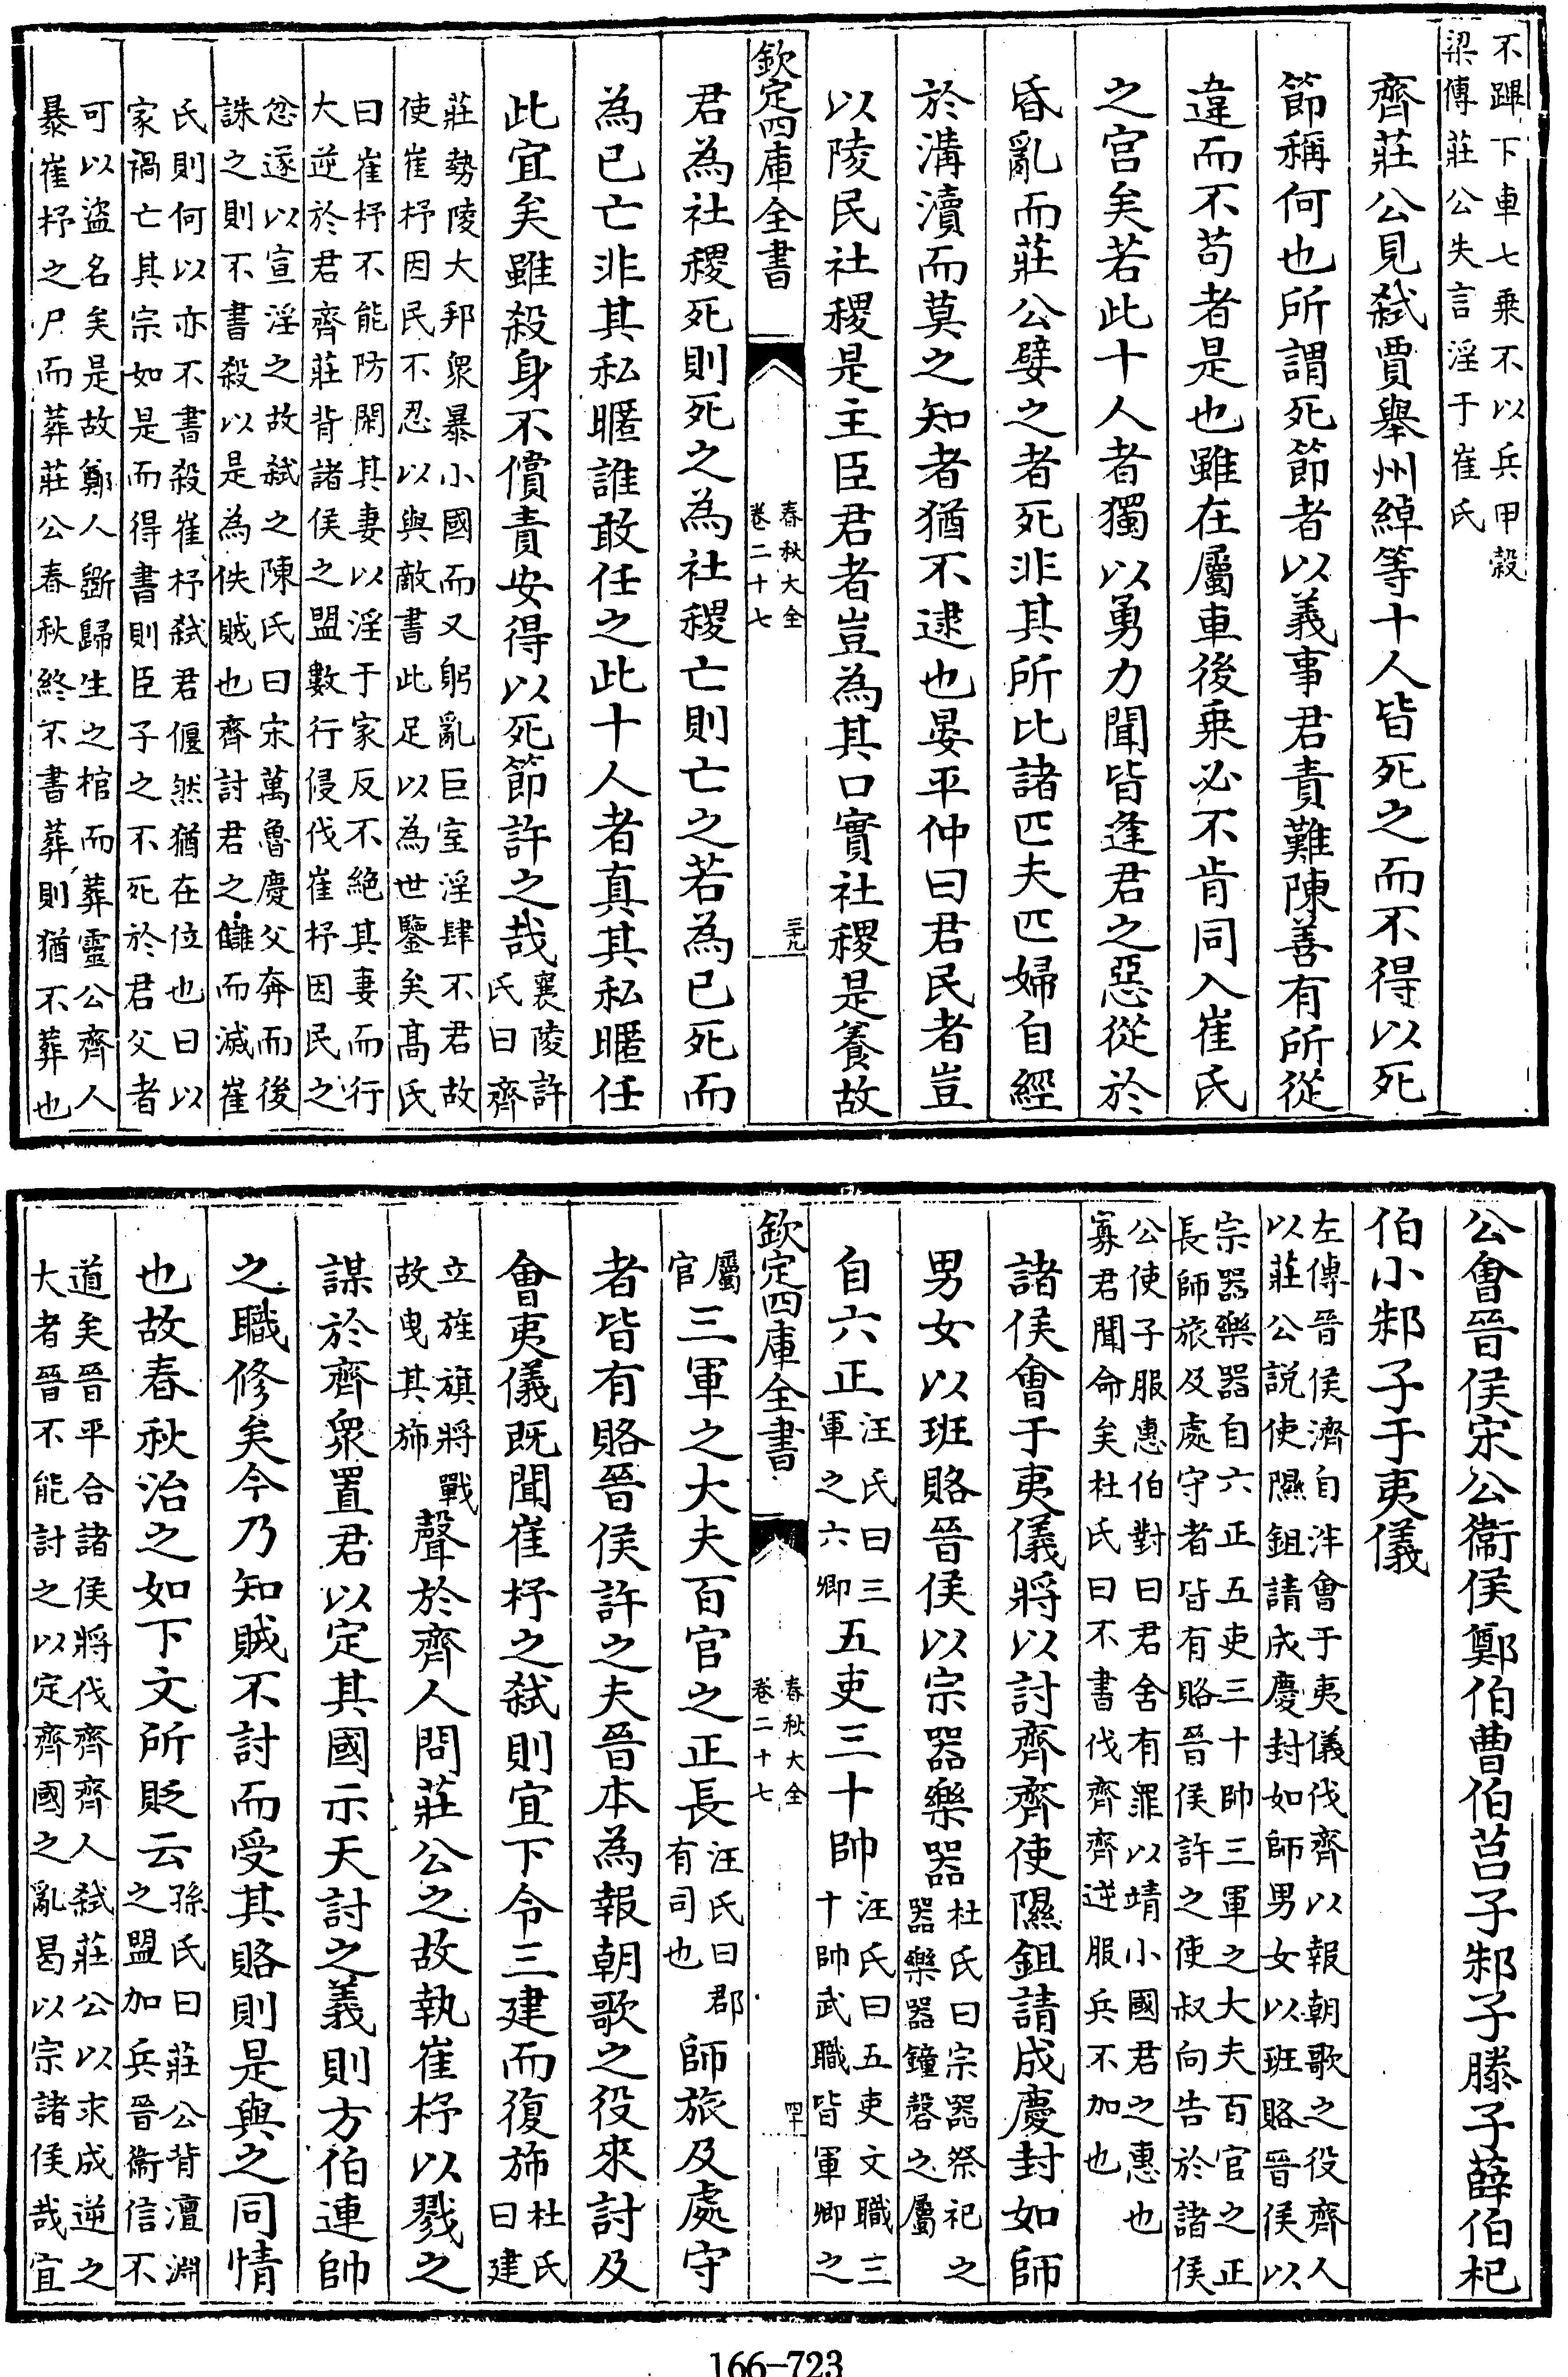 不蹕下車七乗不以兵甲穀
梁傳莊公失言淫于崔氏
齊莊公見弑賈舉州綽等十人皆死之而不得以死
節稱何也所謂死節者以義事君責難陳善有所從
違而不苟者是也雖在屬車後乗必不肯同入崔氏
之宫矣若此十人者獨以勇力聞皆逢君之惡從於
昏亂而莊公嬖之者死非其所比諸匹夫匹婦自經
於溝瀆而莫之知者猶不逮也晏平仲曰君民者豈
以陵民社稷是主臣君者豈為其口實社稷是養故
欽定四庫全書
春秋大全
卷二十七
三十九
君為社稷死則死之為社稷亡則亡之若為已死而
為已亡非其私暱誰敢任之此十人者真其私暱任
此宜矣雖殺身不償責安得以死節許之哉
襄陵許
氏曰齊
莊勢陵大邦衆暴小國而又躬亂巨室淫肆不君故
使崔杼因民不忍以與敵書此足以為世鑒矣髙氏
曰崔杼不能防閑其妻以淫于家反不絶其妻而行
大逆於君齊莊背諸侯之盟數行侵伐崔杼因民之
忿遂以宣淫之故弑之陳氏曰宋萬魯慶父奔而後
誅之則不書殺以是為佚賊也齊討君之讎而滅崔
氏則何以亦不書殺崔杼弑君偃然猶在位也曰以
家禍亡其宗如是而得書則臣子之不死於君父者
可以盜名矣是故鄭人斵歸生之棺而葬靈公齊人
暴崔杼之尸而葬莊公春秋終不書葬則猶不葬也
公會晉侯宋公衞侯鄭伯曹伯莒子邾子滕子薛伯杞
伯小邾子于夷儀
左傳晉侯濟自泮會于夷儀伐齊以報朝歌之役齊人
以莊公説使隰鉏請成慶封如師男女以班賂晉侯以
宗器樂器自六正五吏三十帥三軍之大夫百官之正
長師旅及處守者皆有賂晉侯許之使叔向告於諸侯
公使子服惠伯對曰君舍有罪以靖小國君之惠也
寡君聞命矣杜氏曰不書伐齊齊逆服兵不加也
諸侯會于夷儀將以討齊齊使隰鉏請成慶封如師
男女以班賂晉侯以宗器樂器
杜氏曰宗器祭祀之
器樂器鐘磬之屬
自六正
汪氏曰三
軍之六卿
五吏三十帥
汪氏曰五吏文職三
十帥武職皆軍卿之
欽定四庫全書
春秋大全
卷二十七
四十
屬
官
三軍之大夫百官之正長
汪氏曰郡
有司也
師旅及處守
者皆有賂晉侯許之夫晉本為報朝歌之役來討及
會夷儀既聞崔杼之弑則宜下令三建而復斾
杜氏
曰建
立旌旗將戰
故曳其斾
聲於齊人問莊公之故執崔杼以戮之
謀於齊衆置君以定其國示天討之義則方伯連帥
之職修矣今乃知賊不討而受其賂則是與之同情
也故春秋治之如下文所貶云
孫氏曰莊公背澶淵
之盟加兵晉衞信不
道矣晉平合諸侯將伐齊齊人弑莊公以求成逆之
大者晉不能討之以定齊國之亂曷以宗諸侯哉宜
166-723